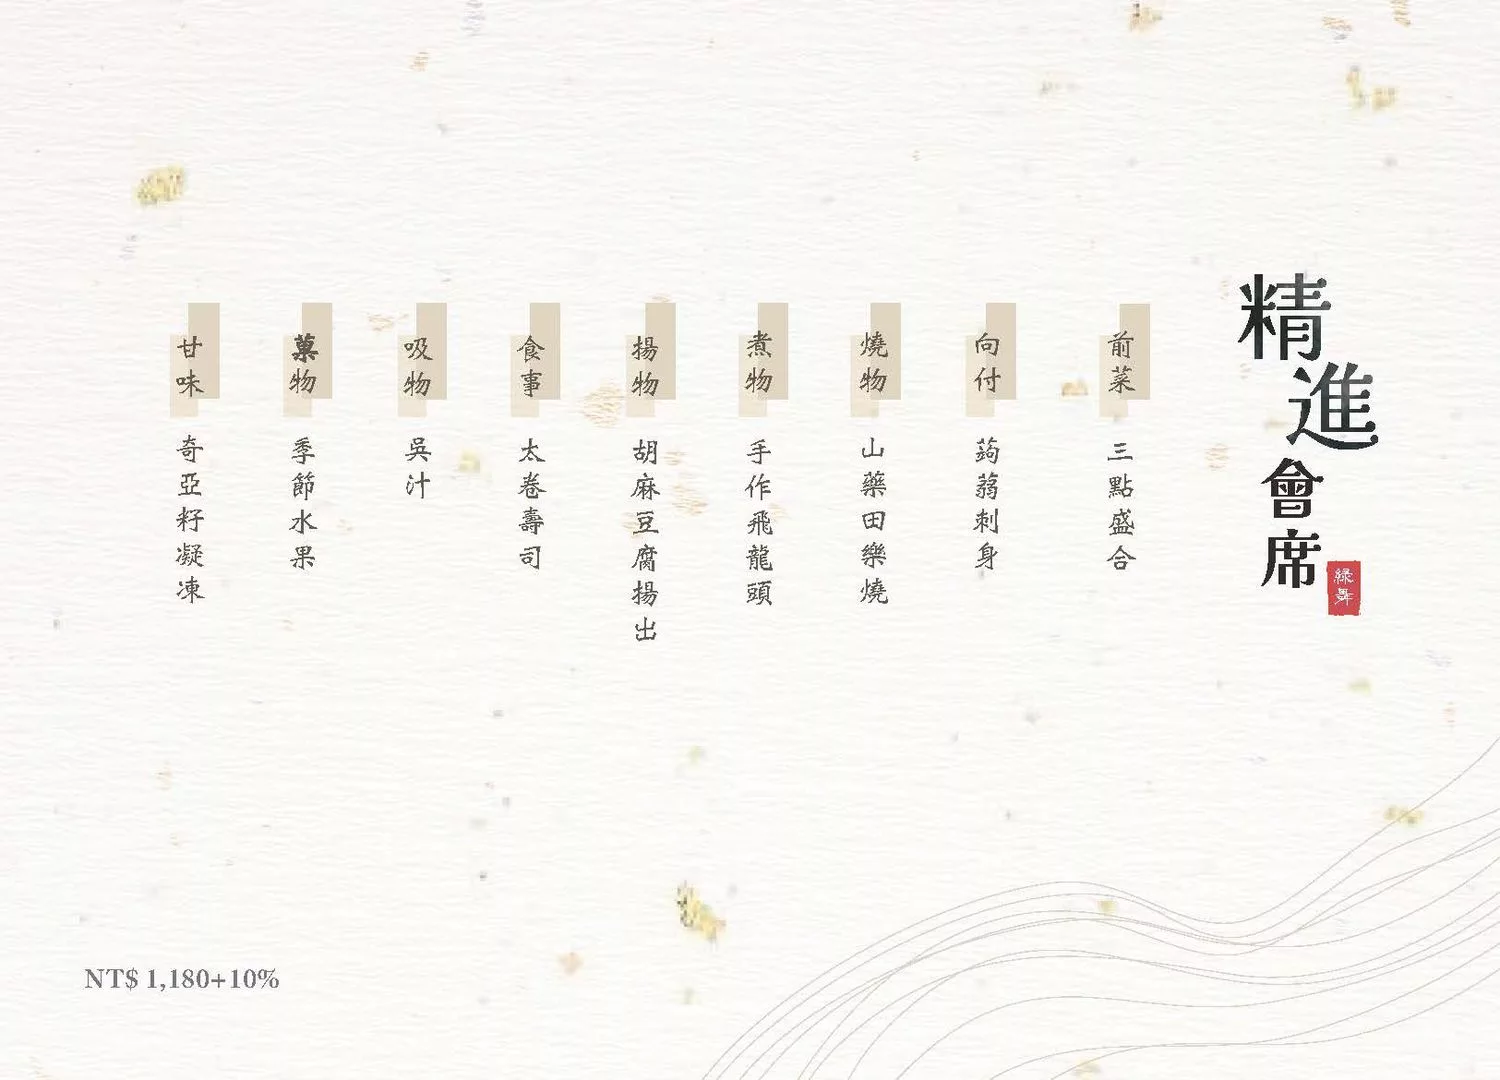 精進會席
綠舞
前菜
三點盛合
向付
蒟蒻刺身
燒物
山藥田樂燒
煮物
手作飛龍頭
揚物
胡麻豆腐揚出
食事
太卷壽司
吸物
吳汁
菓物
季節水果
甘味
奇亞籽凝凍
NT$ 1,180+10%